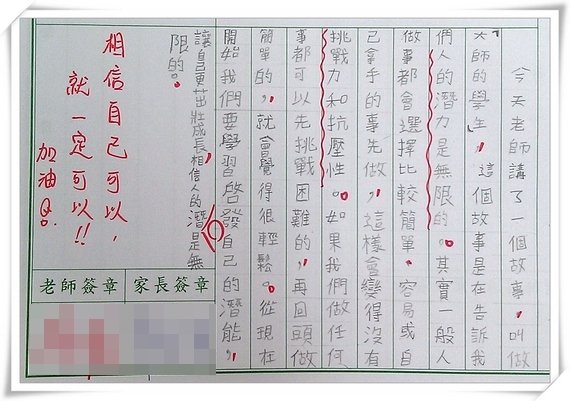 今天老師講了一個故事，叫做
大師的學生，這個故事是在告訴我
們人的潛力是無限的。其實一般人
做事都會選擇比較簡單、容易或自
己拿手的事先做，這樣會變得沒有
挑戰力和抗壓性。如果我們做任何
事都可以先挑戰困難的，再回頭做
簡單的，就會覺得很輕鬆。從現在
開始我們要學習啓發自己的潛能，
讓自己更茁壯成長，相信人的潛是無
限的。
相信自己可以，
就一定可以!!
加油
家長簽章
老師簽章